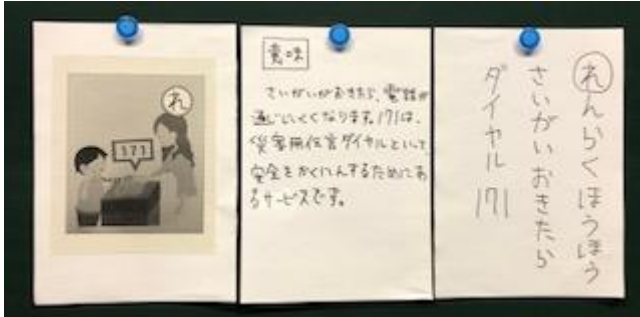 れ
171
意味
さいがいがおきたら、電話が
通じにくくなります。171は、
災害用伝言ダイヤルといって、
安全をかくにんするためにあ
るサービスです。
れんらくほうほう
さいがいおきたら
ダイヤル171